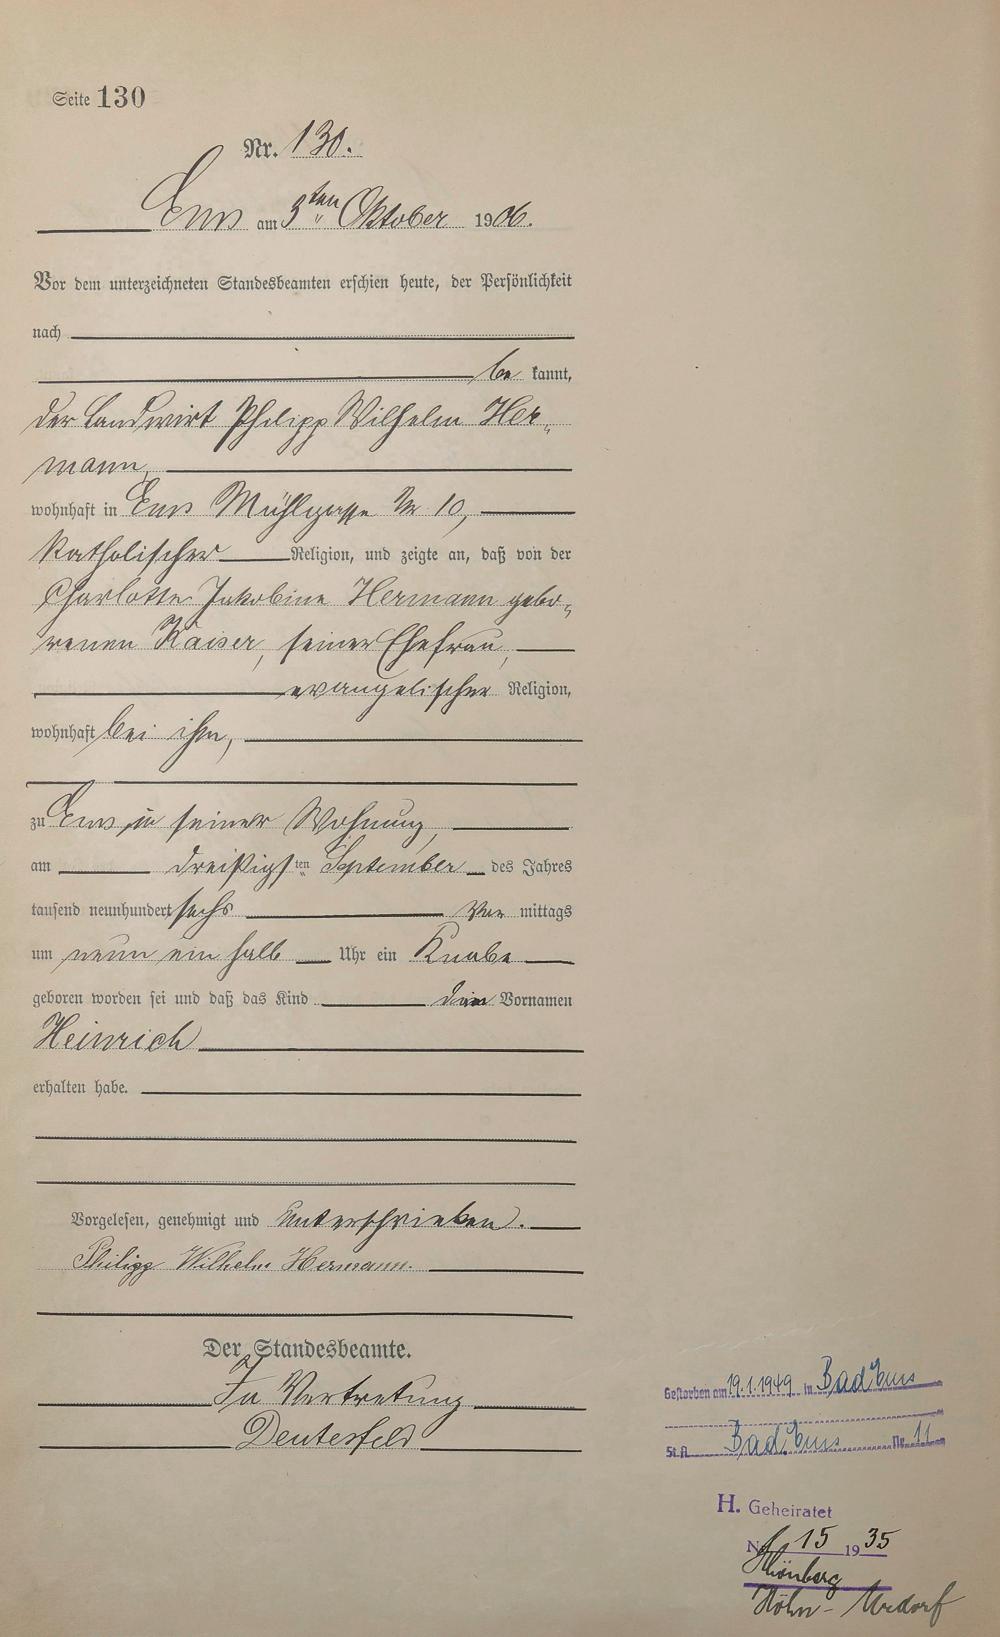 Seite 130
Nr. 130.
Ems am 3ten Oktober 1906.
Vor dem unterzeichneten Standesbeamten erschien heute, der Persönlichkeit
nach
be kannt,
der Landwirt Philipp Wilhelm Her-
mann,
wohnhaft in Ems Mühlgasse Nr 10,
katholischer Religion, und zeigte an, daß von der
Charlotte Jakobine Hermann gebo-
renen Kaiser, seiner Ehefrau,
evangelischer Religion,
wohnhaft bei ihm,
zu Ems in seiner Wohnung,
am dreißigsten September des Jahres
tausend neunhundert sechs Vor mittags
um neun ein halb Uhr ein Knabe
geboren worden sei und daß das Kind den Vornamen
Heinrich
erhalten habe.
Vorgelesen, genehmigt und unterschrieben.
Philipp Wilhelm Hermann.
Der Standesbeamte.
In Vertretung
Deutesfeld
Gestorben am 19.1.1949 in Bad Ems
St.A. Bad Ems Nr. 11
H. Geheiratet
15 1935
Schönberg
Höhn - Urdorf